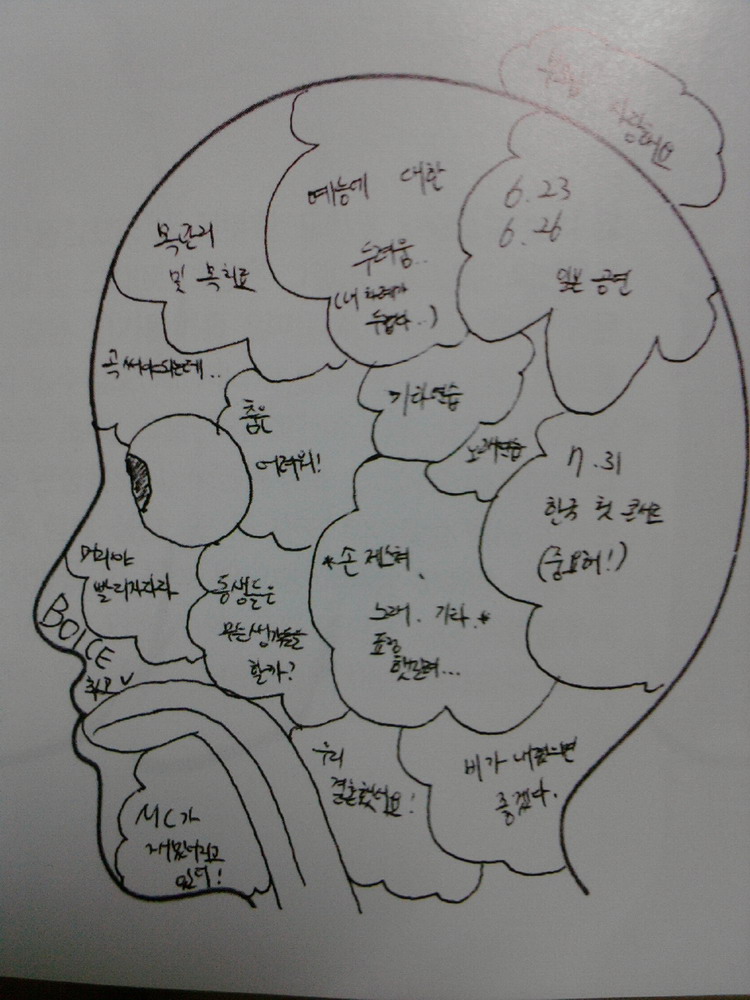 부모님 사랑해요
예능에 대한
두려움..
(내 차례가
두렵다..)
6.23
6.26
일본 공연
목관리
및 목치료
곡 써야되는데..
춤은
어려워!
기타연습
노래연습
7.31
한국 첫 콘서트
(중요해!)
머리야
빨리자라라
BOICE
최고
동생들은
무슨생각들을
할까?
*손 제스쳐,
노래, 기타,*
표정
헷갈려...
우리
결혼했어요!
비가 내렸으면
좋겠다.
MC가
재밌어지고
있다!